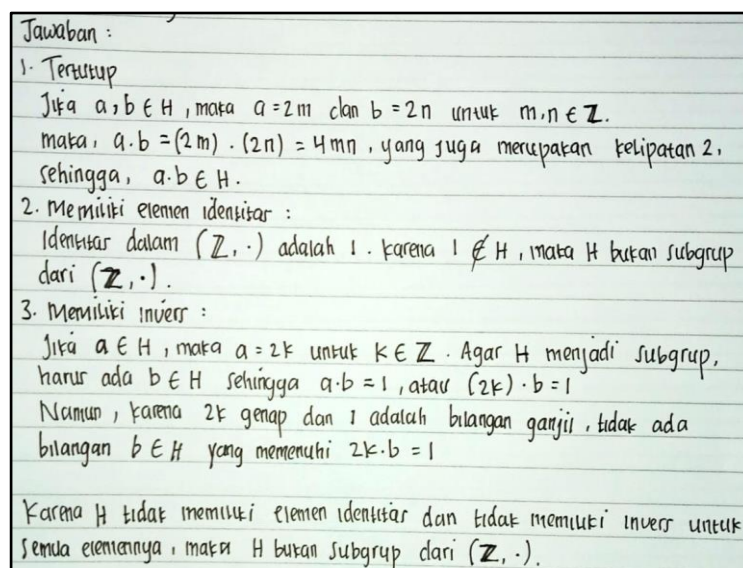 Jawaban :
1. Tertutup
Jika a, b ∈ H, maka a = 2m dan b = 2n untuk m, n ∈ ℤ.
maka, a.b = (2m) . (2n) = 4mn, yang juga merupakan kelipatan 2,
sehingga, a.b ∈ H.
2. Memiliki elemen identitas :
Identitas dalam (ℤ, ·) adalah 1. Karena 1 ∉ H, maka H bukan subgrup
dari (ℤ, ·).
3. Memiliki invers :
Jika a ∈ H, maka a = 2k untuk k ∈ ℤ. Agar H menjadi subgrup,
harus ada b ∈ H sehingga a·b = 1, atau (2k) · b = 1
Namun, karena 2k genap dan 1 adalah bilangan ganjil, tidak ada
bilangan b ∈ H yang memenuhi 2k·b = 1
Karena H tidak memiliki elemen identitas dan tidak memiliki invers untuk
semua elemennya, maka H bukan subgrup dari (ℤ, ·).